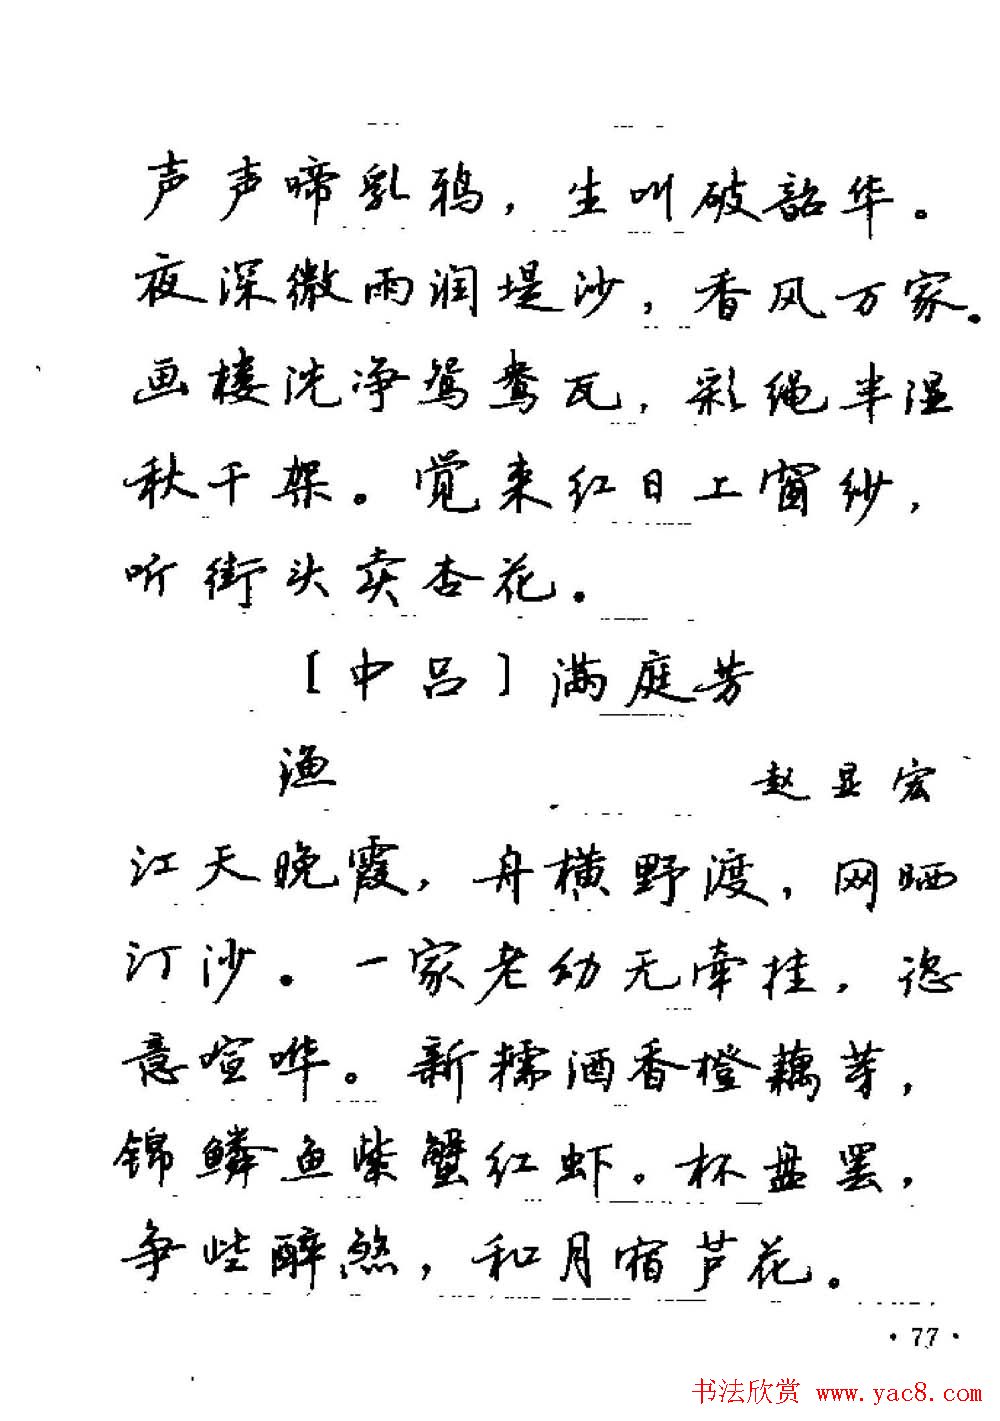 声声啼乳鸦，生叫破韶华。
夜深微雨润堤沙，香风万家。
画楼洗净鸳鸯瓦，彩绳半湿
秋千架。觉来红日上窗纱，
听街头卖杏花。
［中吕］满庭芳
渔 赵显宏
江天晚霞，舟横野渡，网晒
汀沙。一家老幼无牵挂，恣
意喧哗。新糯酒香橙藕芽，
锦鳞鱼紫蟹红虾。杯盘罢，
争些醉煞，和月宿芦花。
·77·
书法欣赏 www.yac8.com